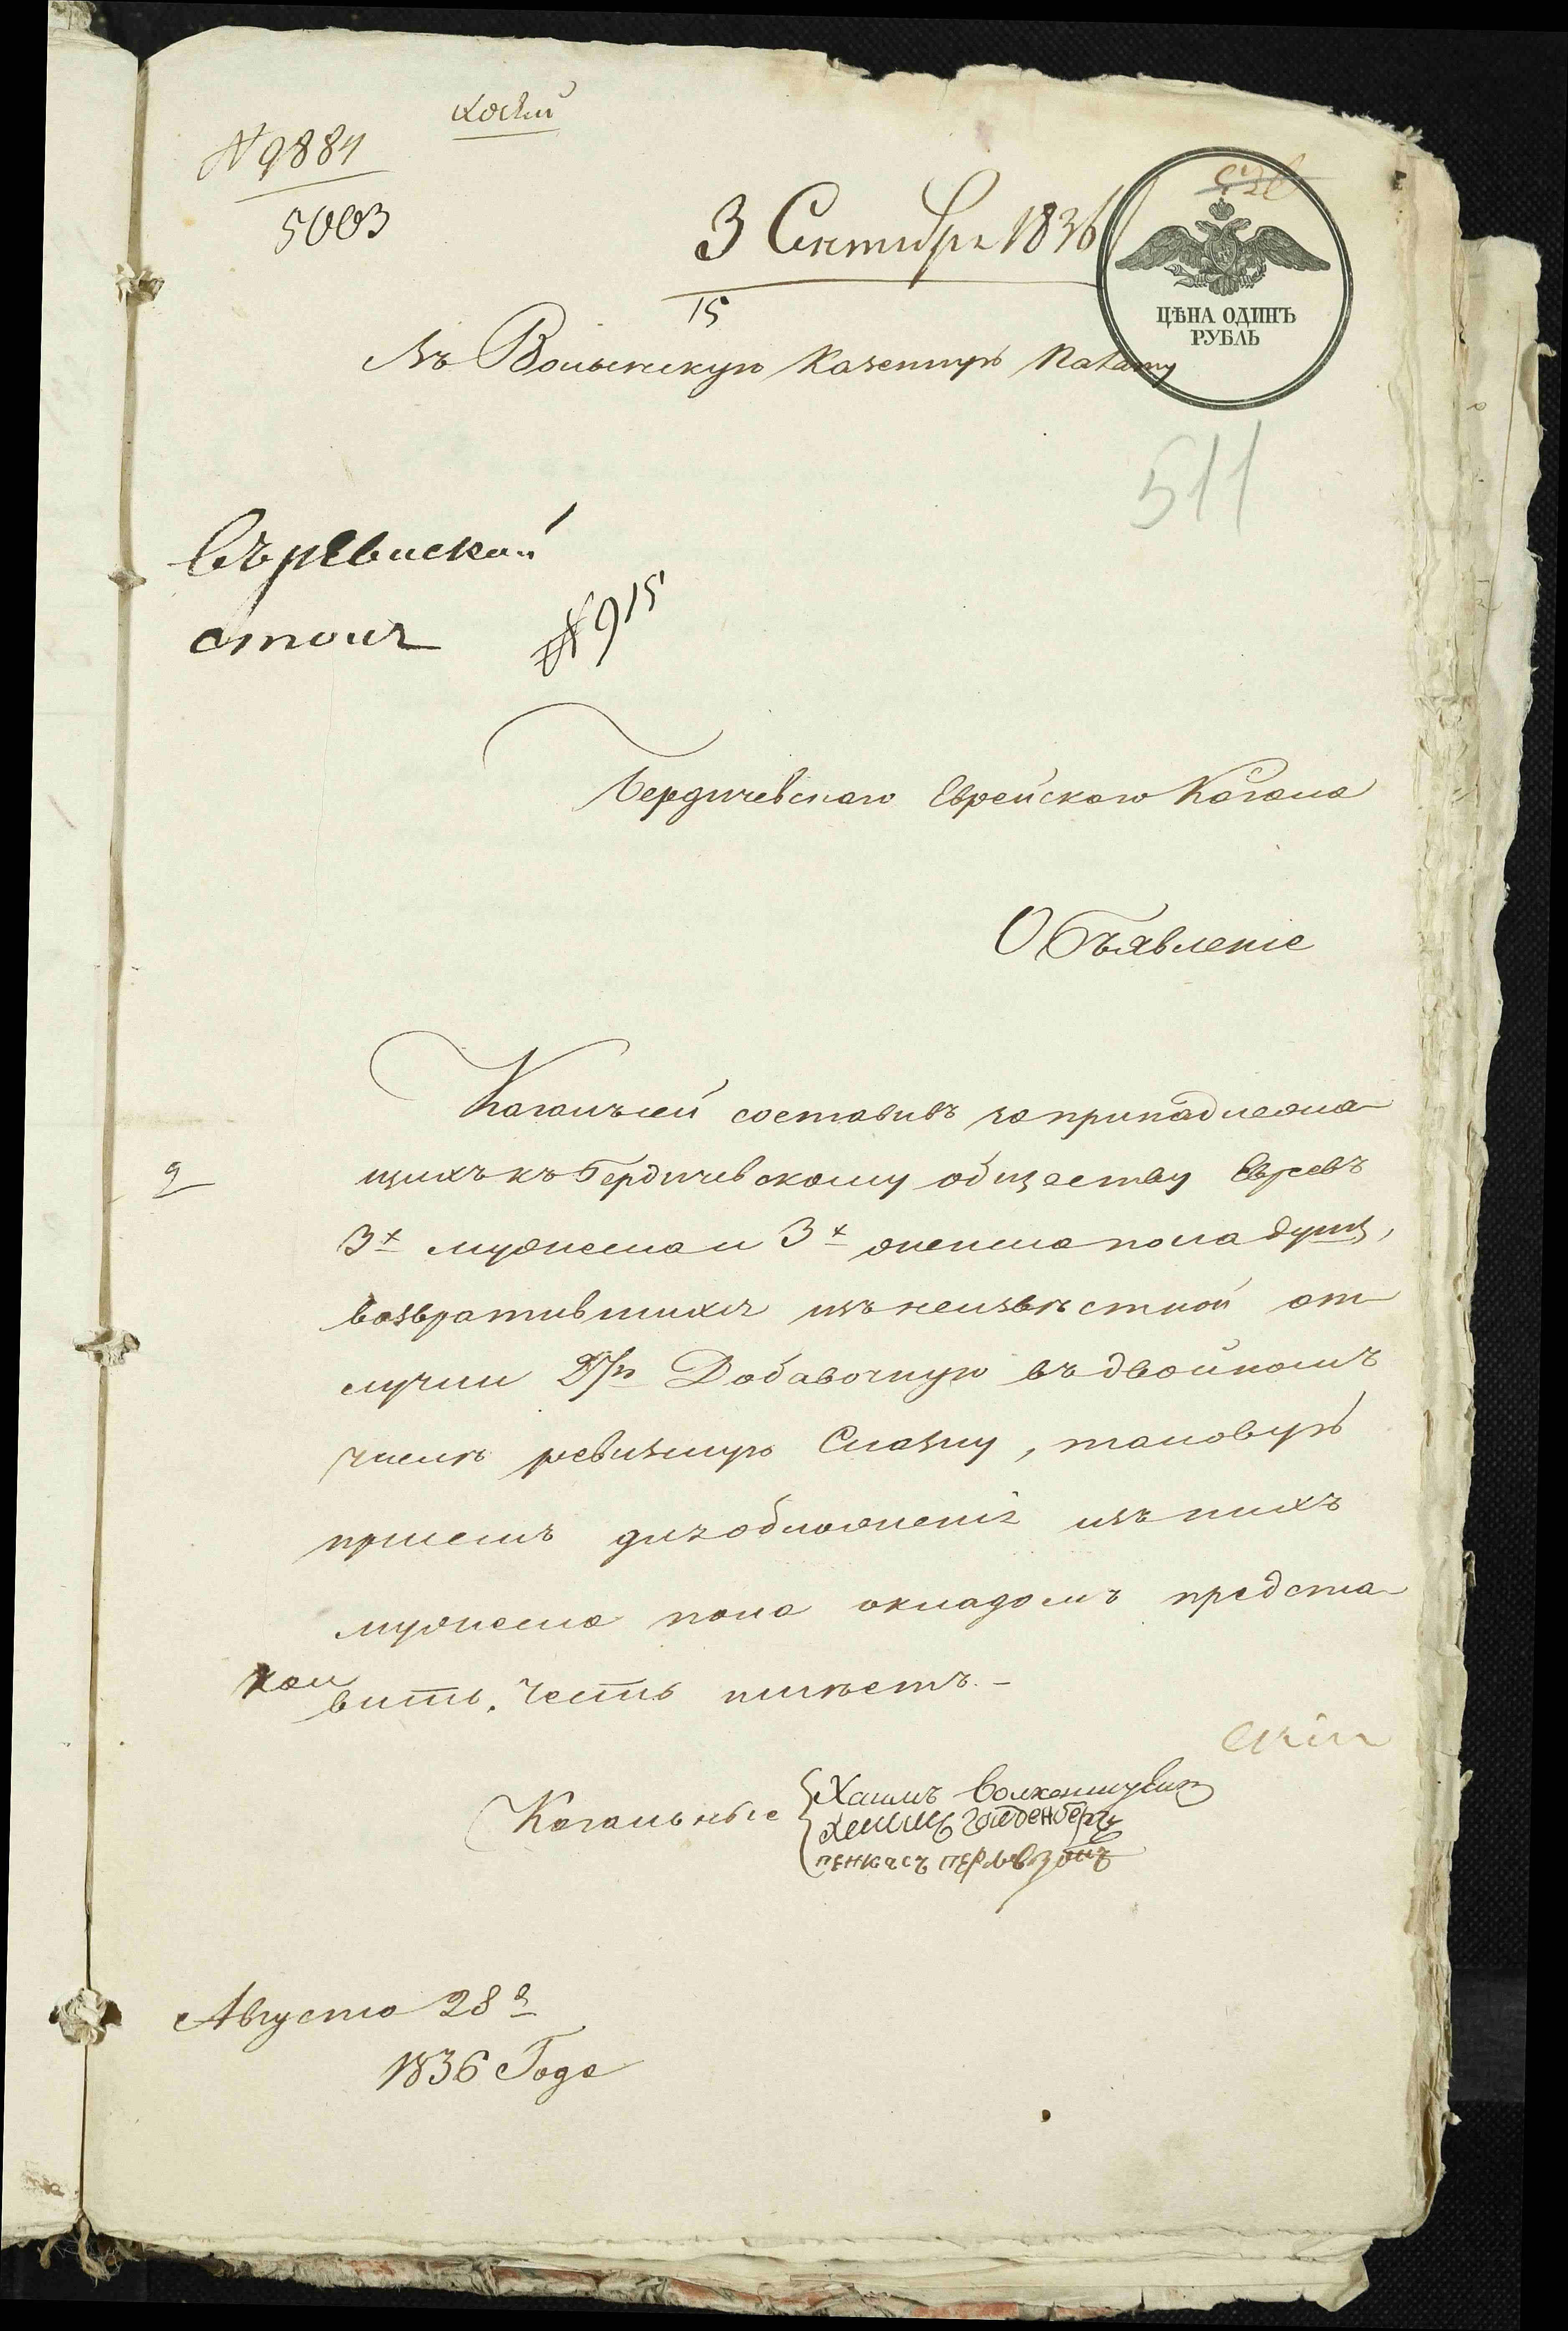 № 9884
5003
3 Сентября 1836
15
ЦѢНА ОДИНЪ
РУБЛЬ
Въ Волынскую Казенную Палату
511
въ ревиской
столъ
№ 915
Бердичевскаго Еврейскаго Кагала
Объявленіе
Кагалъ сей составивъ за принадлежа-
щихъ къ Бердичевскому обществу Евреевъ
2
3х мужеска и 3х женска пола душъ,
возвратившихся изъ неизвѣстной от-
лучки Добавочную въ двойномъ
числѣ ревизкую Сказку, таковую
при семъ для обложенія изъ нихъ
мужеска пола окладомъ предста-
вить, Честь имѣетъ. -
Кагальные
Хаимъ
Августа 28 д
1836 Года